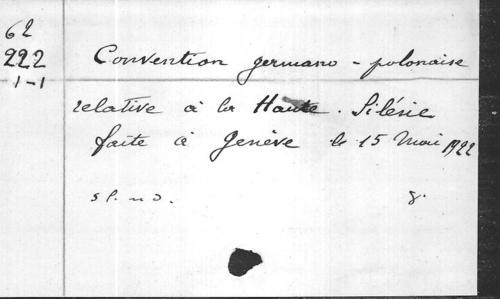 62
222
1-1
Convention germano-polonaise
relative à la Haute-Silésie
faite à Genève le 15 Mai 1922
s l. n d.
8.